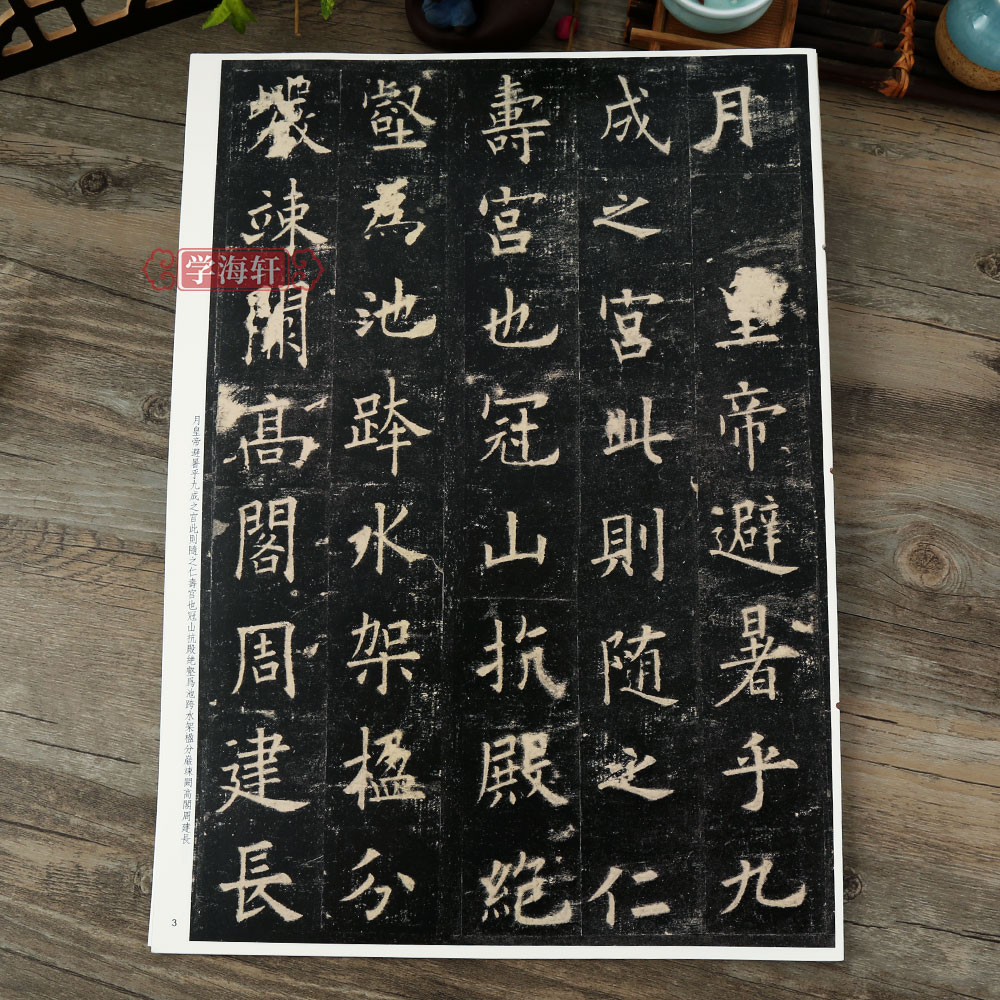 月皇帝避暑乎九
成之宮此則隨之仁
壽宮也冠山抗殿絶
壑為池跨水架楹分
巖竦闕高閣周建長
学海轩
月皇帝避暑乎九成之宮此則隨之仁壽宮也冠山抗殿絶壑爲池跨水架楹分巖竦闕高閣周建長
3